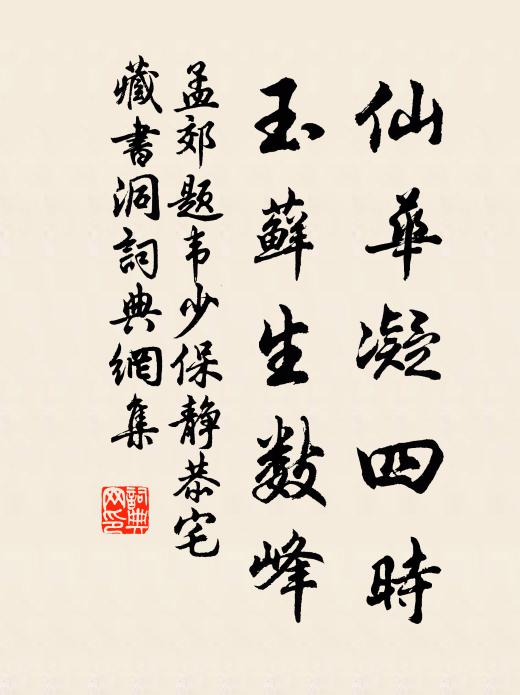 仙華凝四時
玉蘚生數峰
孟郊題韦少保静恭宅
藏書洞詞典網集
詞典网印